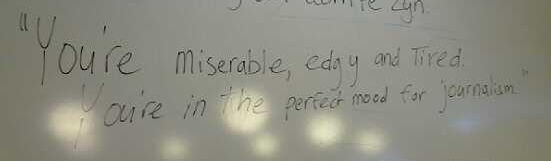 "You're miserable, edgy and Tired.
You're in the perfect mood for journalism."